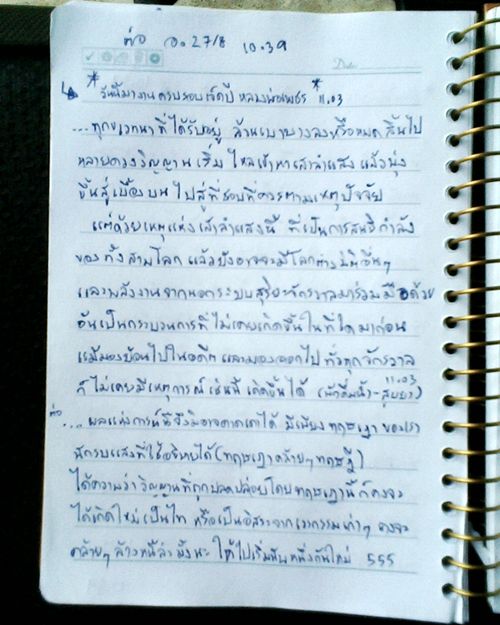 ต่อ อ. 27/8 10.39
Date
* วันนี้มางานครบรอบเจ็ดปี หลวงพ่อเพชร * 11.03
... ทุกขเวทนาที่ได้รับอยู่ ล้วนเบาบางลงหรือหมดสิ้นไป
หลายดวงวิญญาน เริ่มไหลเข้าหาเสาลำแสง แล้วพุ่ง
ขึ้นสู่เบื้องบน ไปสู่ที่ชอบที่ควรตามเหตุปัจจัย
แต่ด้วยเหตุแห่งเสาลำแสงนี้ ที่เป็นการสนธิกำลัง
ของทั้งสามโลก แล้วยังอาจจะมีโลกต่างมิติอื่นๆ
และพลังงานจากนอกระบบสุริยะจักรวาลมาร่วมมือด้วย
อันเป็นกระบวนการที่ไม่เคยเกิดขึ้นในที่ใดมาก่อน
แม้มองย้อนไปในอดีต และมองออกไปทั่วทุกจักรวาล
ก็ไม่เคยมีเหตุการณ์เช่นนี้เกิดขึ้นได้ 11.03
ต่อ ... ผลแห่งการณ์นี้จึงมิอาจคาดเดาได้ มีเพียงทฤษฎา ของเรา
นักรบแสงที่ใช้อธิบายได้ (ทฤษฎาคล้ายๆทฤษฎี)
ได้ความว่า วิญญานที่ถูกปลดปล่อยโดยทฤษฎานี้ ก็คงจะ
ได้เกิดใหม่เป็นไท หรือเป็นอิสระจากเวรกรรมเก่าๆ คงจะ
คล้ายๆ ล้างหนี้ล่ะมั้งนะ ให้ไปเริ่มนับหนึ่งกันใหม่ 555